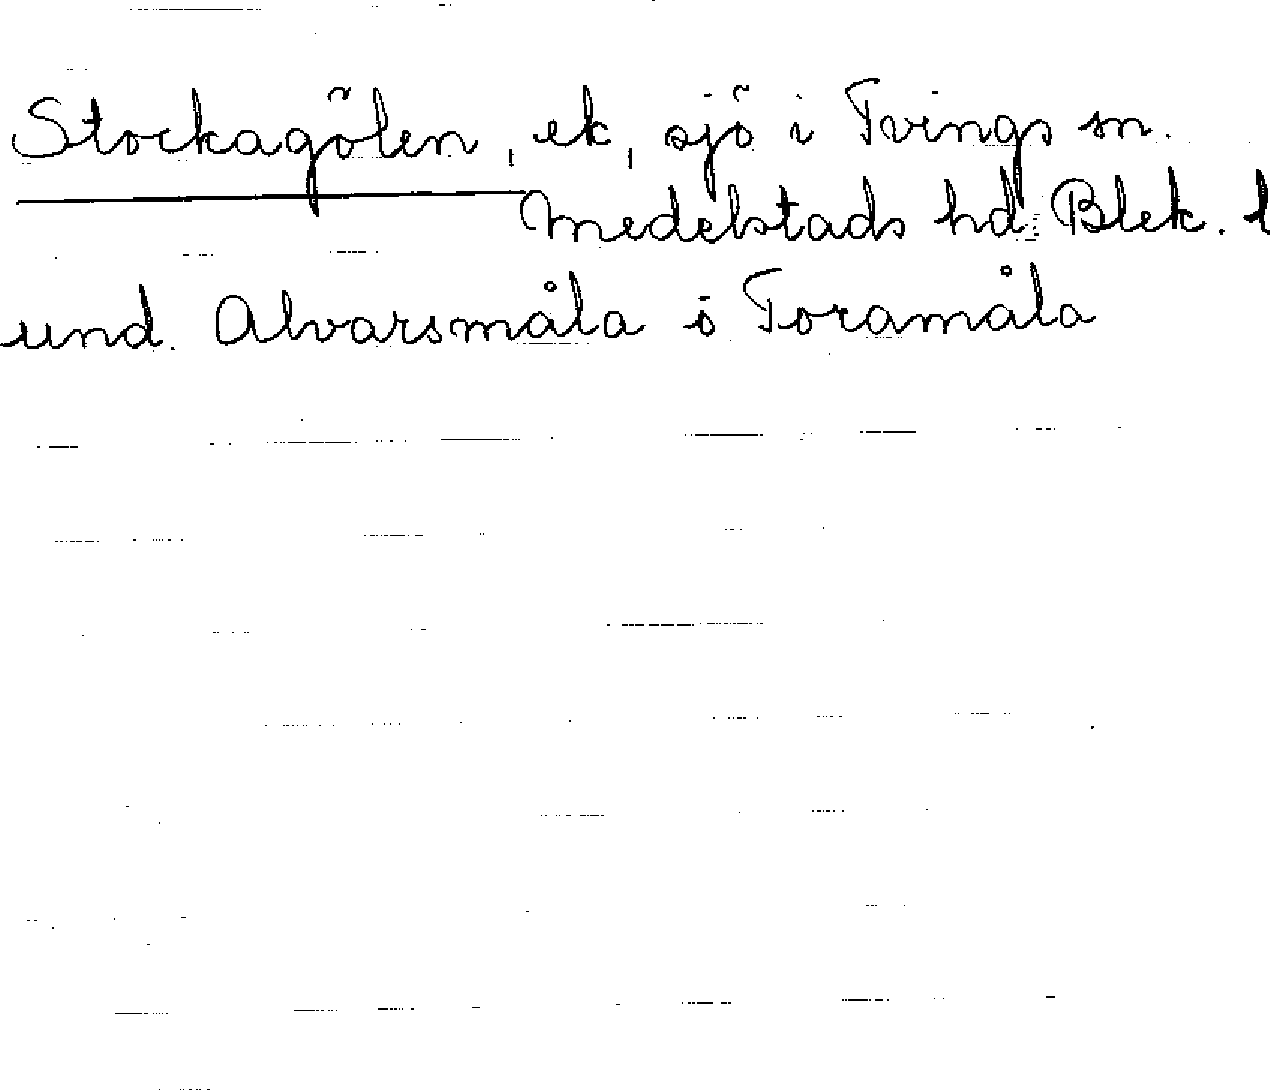 Stockagölen, ek, sjö i Tvings sn.
Medelstads hd. Blek. l
und. Alvarsmåla o Toramåla